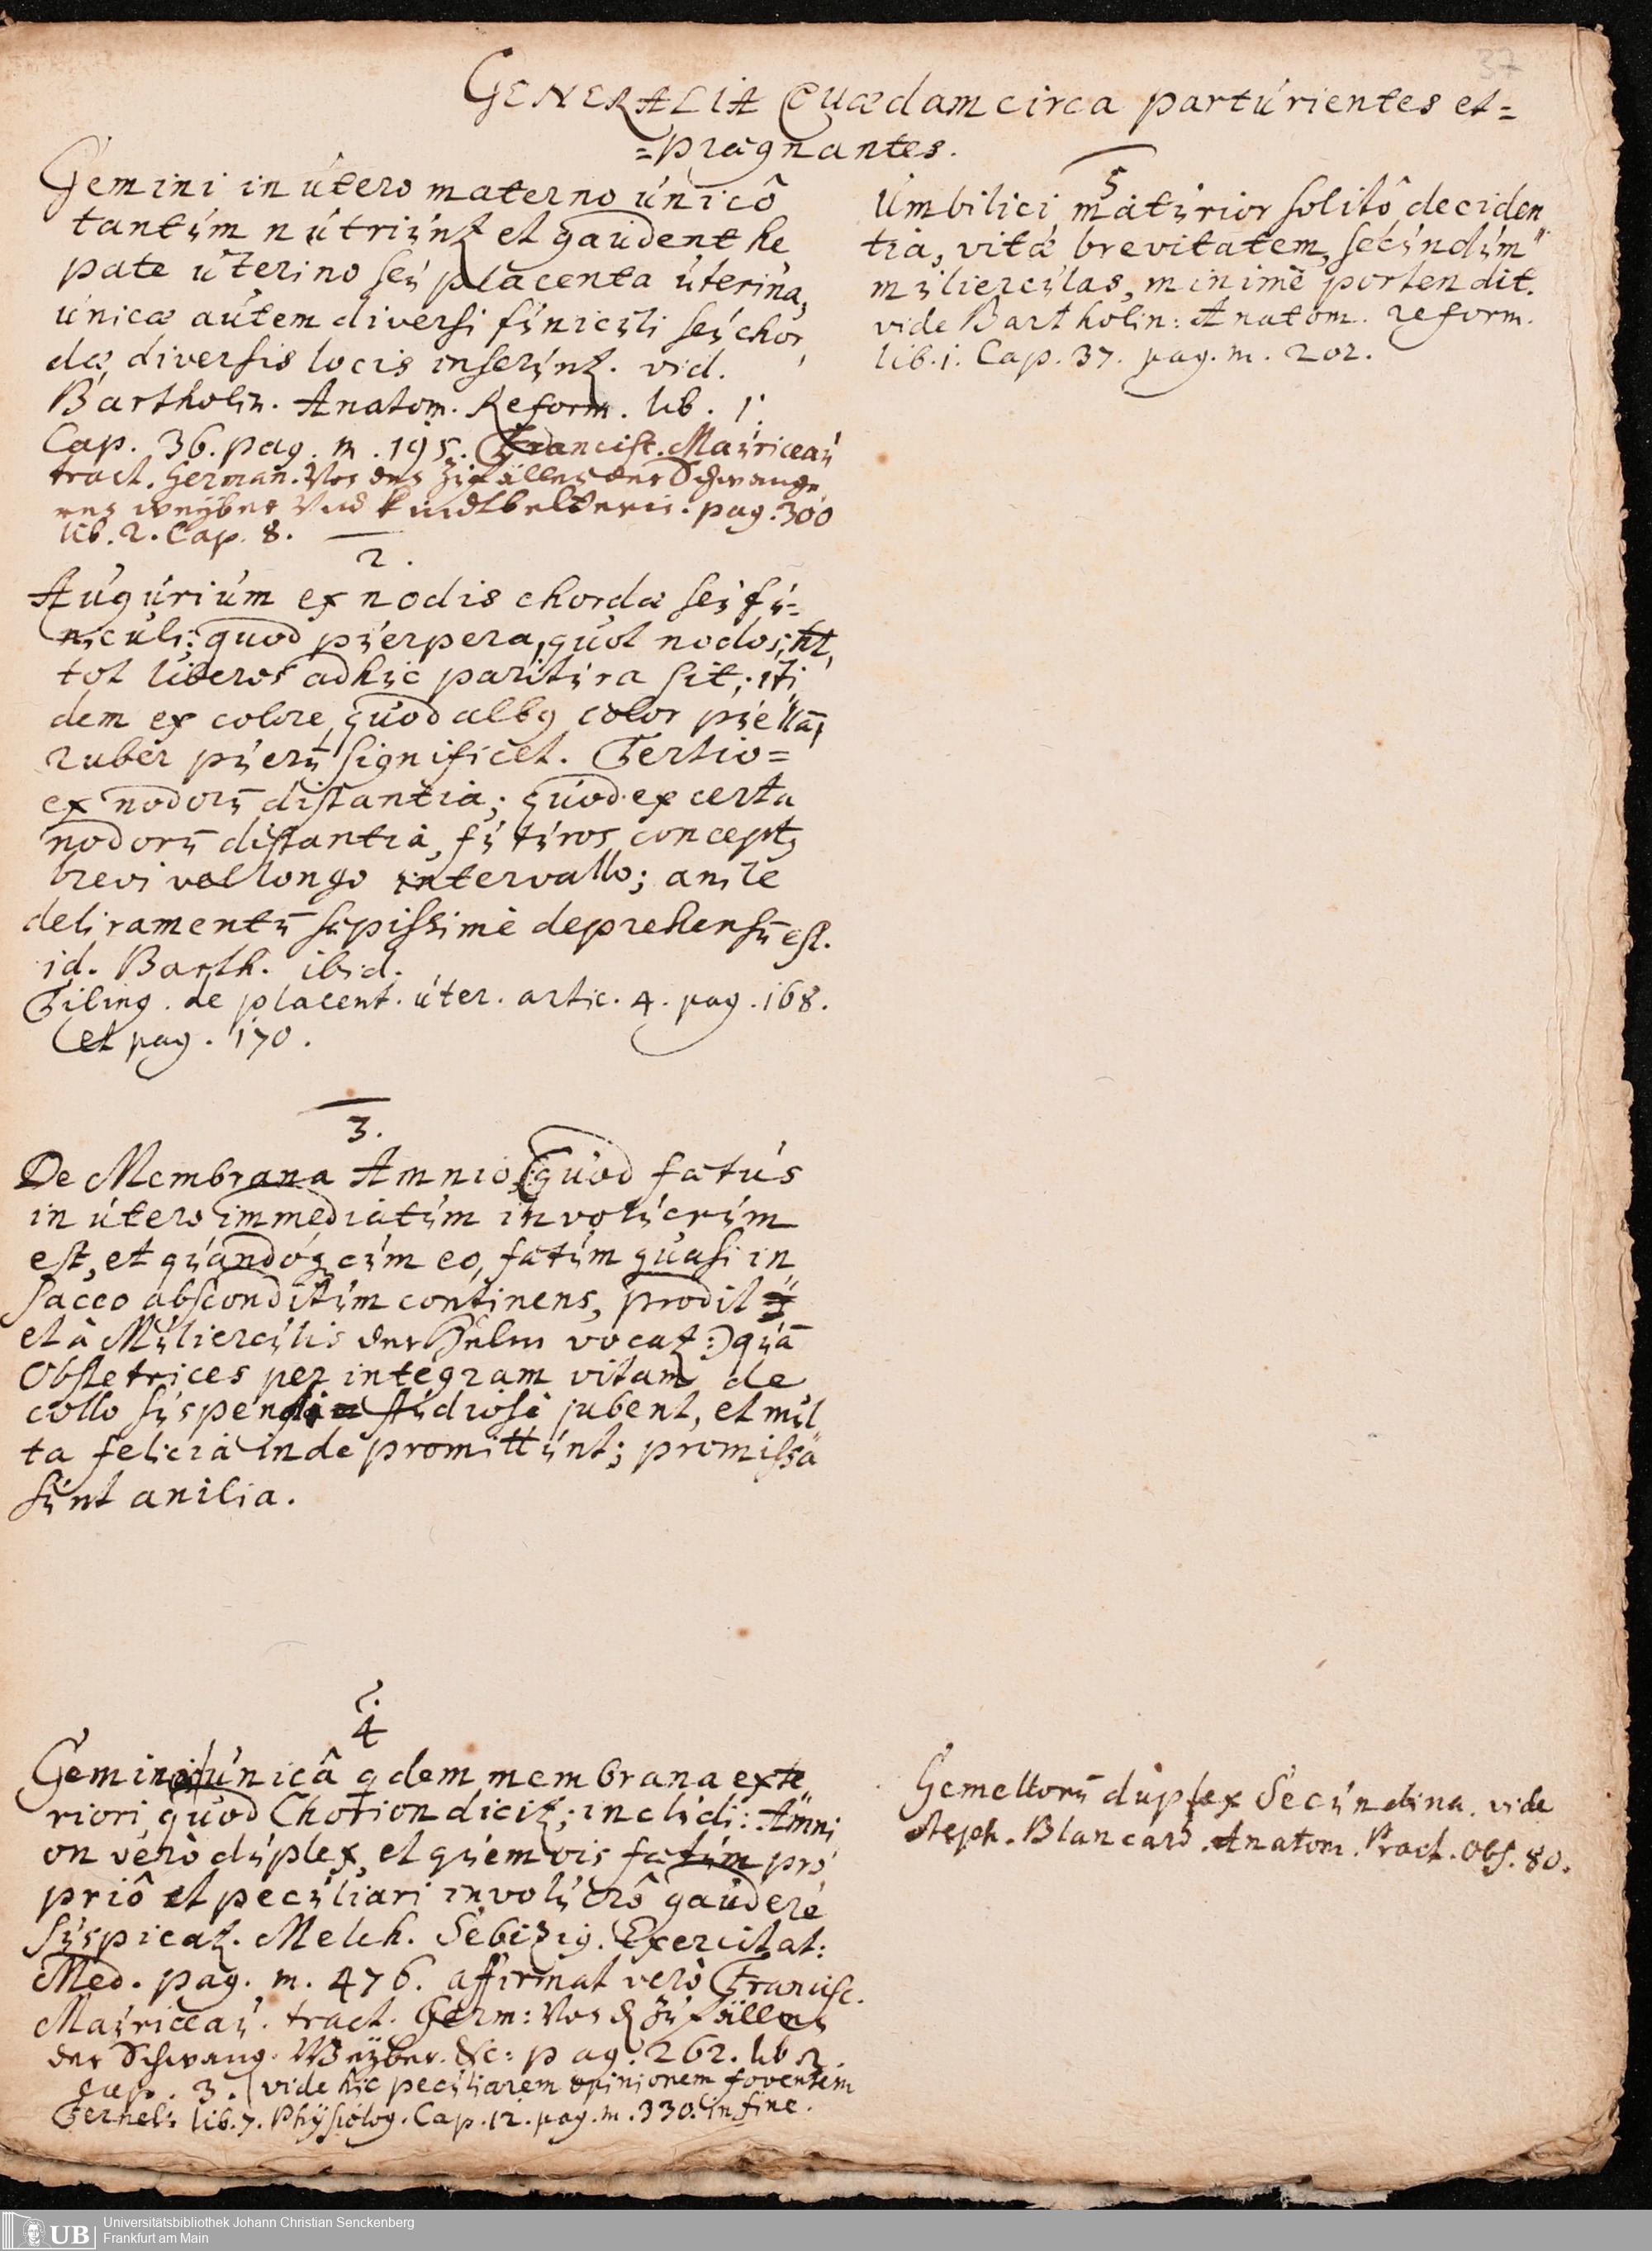 37
GENERALIA Quædam circa partúrientes et=
=prægnantes.
Gemini in útero materno únicô
tantúm nútriúntur et gaúdent he
pate úterino seú placenta úterina,
únicæ aútem diversi fúnicúli seú chor
dæ diversis locis inserúntur. vid.
Bartholin. Anatom. Reform. lib. 1.
Cap. 36. pag. m. 195. Francisc. Maúriceaú
tract. German. Von den Zúfällen der Schwange
ren weÿber Vnd Kindtbetterin. pag. 300
lib. 2. Cap. 8.
2.
Aúgúriúm ex nodis chordæ seú fú=
nicúli: quod púerpera, quot nodos,
tot liberos adhúc paritúra sit; iti
dem ex colore, quod albus color púellā,
ruber púerū significet. Tertio=
ex nodorū distantia; quod ex certa
nodorū distantia, fútúros conceptus
brevi vel longo intervallo; anile
deliramentū sæpissimè deprehensū est.
id. Barth. ibid.
Tiling. de placent. úter. artic. 4. pag. 168.
et pag. 170.
3.
De Membrana Amnio (:quod fætús
in útero immediatúm involúcrúm
est, et qúandóq cúm eo, fætúm quasi in
sacco absconditúm continens, prodit
et à Múliercúlis der Helm vocatur:) qúā
Obstetrices per integram vitam de
collo súspendi stúdiosè jubent, et múl
ta felicia inde promittúnt; promissa
súnt anilia.
4
Gemini únicâ qdem membrana exte
riori, quod Chorion dicitur; inclúdi: Amni
on verò dúplex, et qúemvis fætúm pro
priô et pecúliari involúcrô gaúdere
súspicatur. Melch. Sebizig. Exercitat:
Med. pag. m. 476. affirmat verò Francisc.
Maúriceaú. tract. Germ: Von den Zúfällen
der Schwang. Weÿber. &c: pag. 262. lib 2.
cap. 3. vide hîc pecúliarem opinionem foventem
Fernel: lib. 7. Phÿsiolog. Cap. 12. pag. m. 330. in fine.
5
Úmbilici matúrior solitô deciden
tia, vitæ brevitatem, secúndúm
múliercúlas, minimè portendit.
vide Bartholin: Anatom. reform.
lib. i. Cap. 37. pag. m. 202.
Gemellorū dúplex Secúndina. vide
Steph. Blancard. Anatom. Pract. Obs. 80.
UB Universitätsbibliothek Johann Christian Senckenberg
Frankfurt am Main